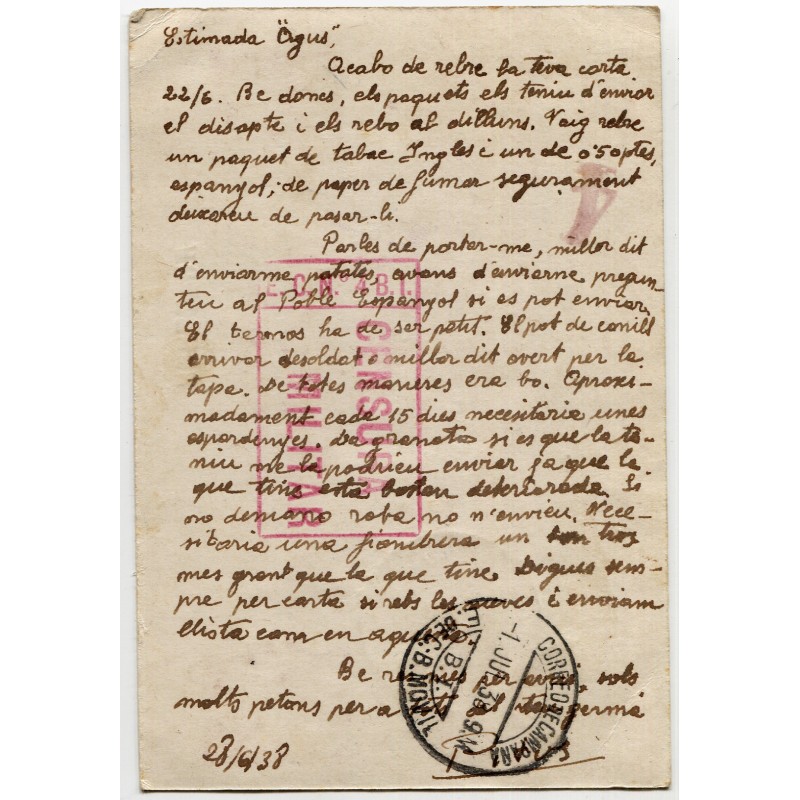 Estimada "Agus",
Acabo de rebre la teva carta
22/6. Be doncs, els paquets els teniu d'enviar
el disapte i els rebo al dilluns. Vaig rebre
un paquet de tabac Ingles i un de 0'50 ptes,
espanyol; de paper de fumar segurament
deixareu de pasar-li.
Parles de portar-me, millor dit
d'enviarme patates, avans d'enviarne pregun-
teu al Poble Espanyol si es pot enviar.
El termos ha de ser petit. El pot de conill
arrivar desoldat o millor dit overt per la
tapa. De totes maneres era bo. Aproxi-
madament cada 15 dies necesitaria unes
espardenyes. La granota si es que la te-
niu me la podrieu enviar ja que la
que tinc esta bastan deteriorada. Si
no demano roba no n'envieu. Nece-
sitaria una fiambrera un tros
mes grant que la que tinc. Digues sem-
pre per carta si rebs les meves i enviam
llista com en aquesta.
Be per avui, sols
molts petons per a del germá
28/6/38
E.C.Nº 4 B.I.
CENSURA
MILITAR
CORREO DE CAMPAÑA
-1. JUL 38. 9 M